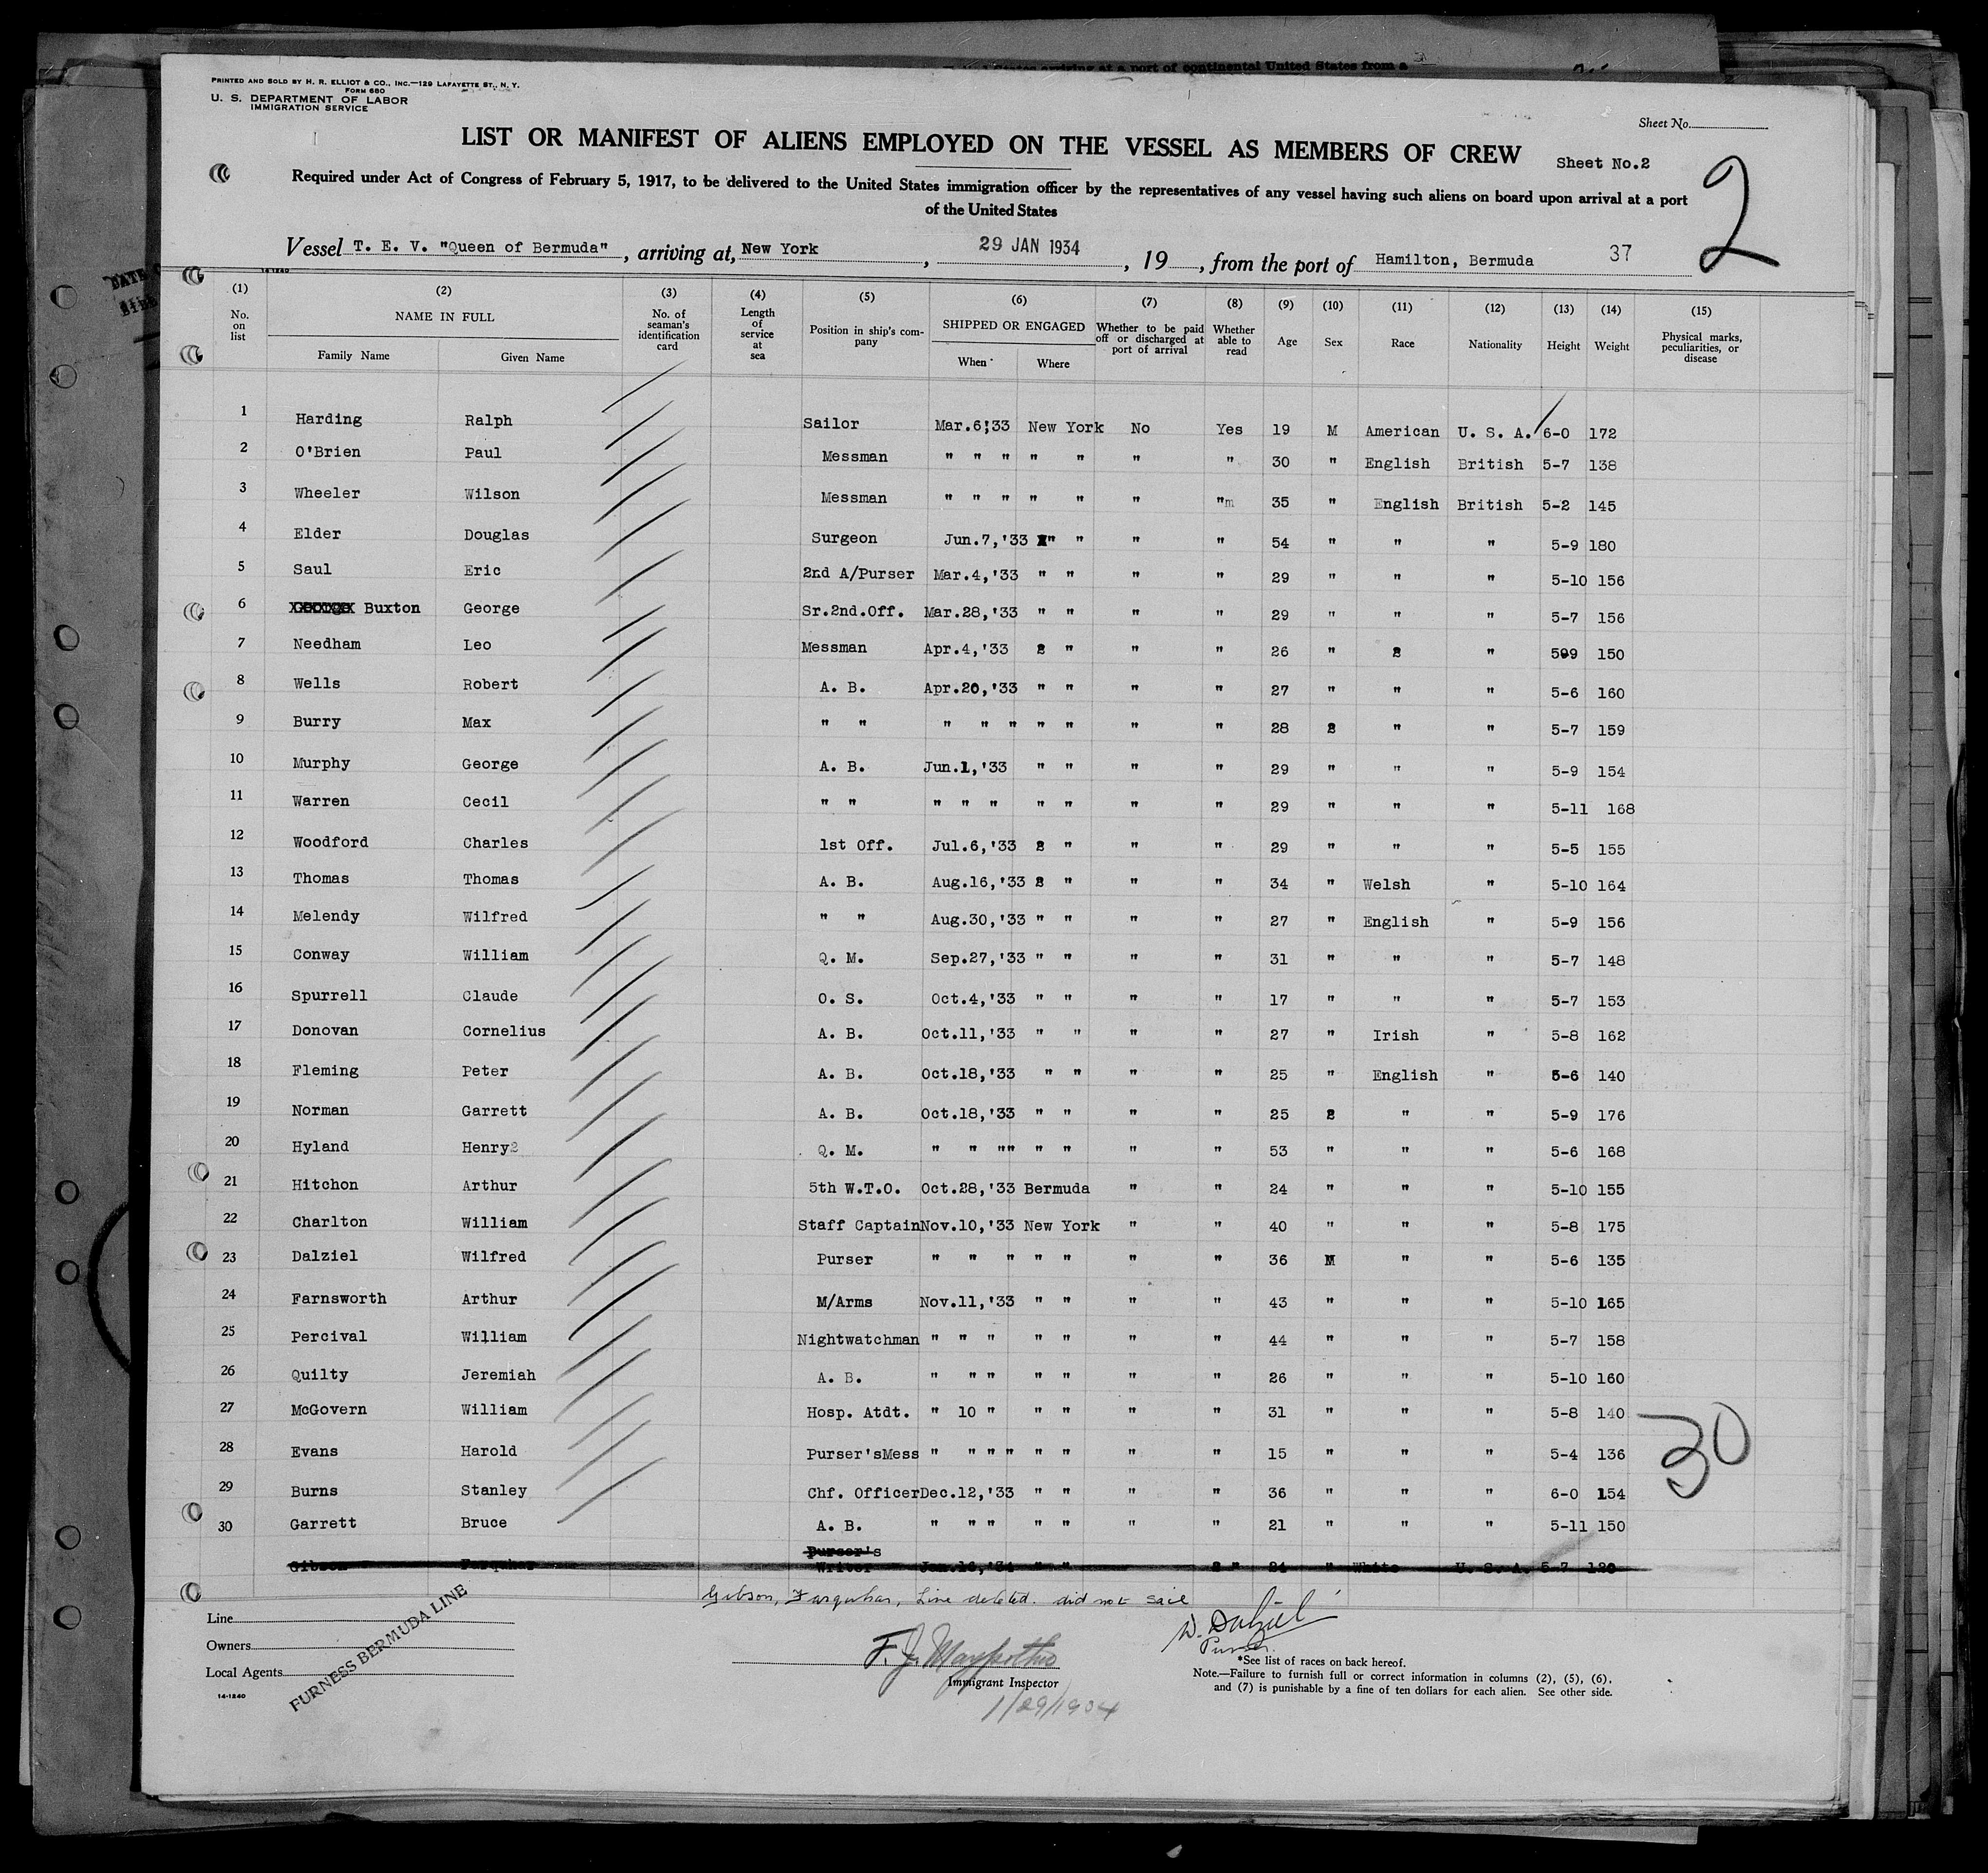 PRINTED AND SOLD BY H. R. ELLIOT & CO., INC.—129 LAFAYETTE ST., N. Y.
FORM 680
U. S. DEPARTMENT OF LABOR
IMMIGRATION SERVICE
Sheet No.
LIST OR MANIFEST OF ALIENS EMPLOYED ON THE VESSEL AS MEMBERS OF CREW Sheet No.2 2
Required under Act of Congress of February 5, 1917, to be delivered to the United States immigration officer by the representatives of any vessel having such aliens on board upon arrival at a port
of the United States
Vessel T. E. V. "Queen of Bermuda", arriving at, New York, 29 JAN 1934, 19, from the port of Hamilton, Bermuda 37
14-1240
(1) (2) (3) (4) (5) (6) (7) (8) (9) (10) (11) (12) (13) (14) (15)
No. on list NAME IN FULL Family Name Given Name No. of seaman's identification card Length of service at sea Position in ship's company SHIPPED OR ENGAGED When Where Whether to be paid off or discharged at port of arrival Whether able to read Age Sex Race Nationality Height Weight Physical marks, peculiarities, or disease
1 Harding Ralph Sailor Mar.6;33 New York No Yes 19 M American U. S. A. 6-0 172
2 O'Brien Paul Messman " " " " " " " 30 " English British 5-7 138
3 Wheeler Wilson Messman " " " " " " "m 35 " English British 5-2 145
4 Elder Douglas Surgeon Jun.7,'33 " " " " 54 " " " 5-9 180
5 Saul Eric 2nd A/Purser Mar.4,'33 " " " " 29 " " " 5-10 156
6 Buxton George Sr.2nd.Off. Mar.28,'33 " " " " 29 " " " 5-7 156
7 Needham Leo Messman Apr.4,'33 2 " " " 26 " 2 " 599 150
8 Wells Robert A. B. Apr.20,'33 " " " " 27 " " " 5-6 160
9 Burry Max " " " " " " " " " 28 2 " " 5-7 159
10 Murphy George A. B. Jun.1,'33 " " " " 29 " " " 5-9 154
11 Warren Cecil " " " " " " " " " 29 " " " 5-11 168
12 Woodford Charles 1st Off. Jul.6,'33 2 " " " 29 " " " 5-5 155
13 Thomas Thomas A. B. Aug.16,'33 2 " " " 34 " Welsh " 5-10 164
14 Melendy Wilfred " " Aug.30,'33 " " " " 27 " English " 5-9 156
15 Conway William Q. M. Sep.27,'33 " " " " 31 " " " 5-7 148
16 Spurrell Claude O. S. Oct.4,'33 " " " " 17 " " " 5-7 153
17 Donovan Cornelius A. B. Oct.11,'33 " " " " 27 " Irish " 5-8 162
18 Fleming Peter A. B. Oct.18,'33 " " " " 25 " English " 5-6 140
19 Norman Garrett A. B. Oct.18,'33 " " " " 25 2 " " 5-9 176
20 Hyland Henry2 Q. M. " " "" " " " " 53 " " " 5-6 168
21 Hitchon Arthur 5th W.T.O. Oct.28,'33 Bermuda " " 24 " " " 5-10 155
22 Charlton William Staff Captain Nov.10,'33 New York " " 40 " " " 5-8 175
23 Dalziel Wilfred Purser " " " " " " " 36 M " " 5-6 135
24 Farnsworth Arthur M/Arms Nov.11,'33 " " " " 43 " " " 5-10 165
25 Percival William Nightwatchman " " " " " " " 44 " " " 5-7 158
26 Quilty Jeremiah A. B. " " " " " " " 26 " " " 5-10 160
27 McGovern William Hosp. Atdt. " 10 " " " " " 31 " " " 5-8 140
28 Evans Harold Purser'sMess " " " " " " " " 15 " " " 5-4 136
29 Burns Stanley Chf. Officer Dec.12,'33 " " " " 36 " " " 6-0 154
30 Garrett Bruce A. B. " " " " " " " 21 " " " 5-11 150
30
Gibson Farquhar Purser's Writer Jan.16,'34 " " 2 " 21 " White U. S. A. 5-7 120
Gibson, Farquhar, Line deleted. did not sail
W. Dalziel
Purser.
Line
Owners
Local Agents
FURNESS BERMUDA LINE
14-1240
Immigrant Inspector
1/29/1934
*See list of races on back hereof.
Note.—Failure to furnish full or correct information in columns (2), (5), (6),
and (7) is punishable by a fine of ten dollars for each alien. See other side.